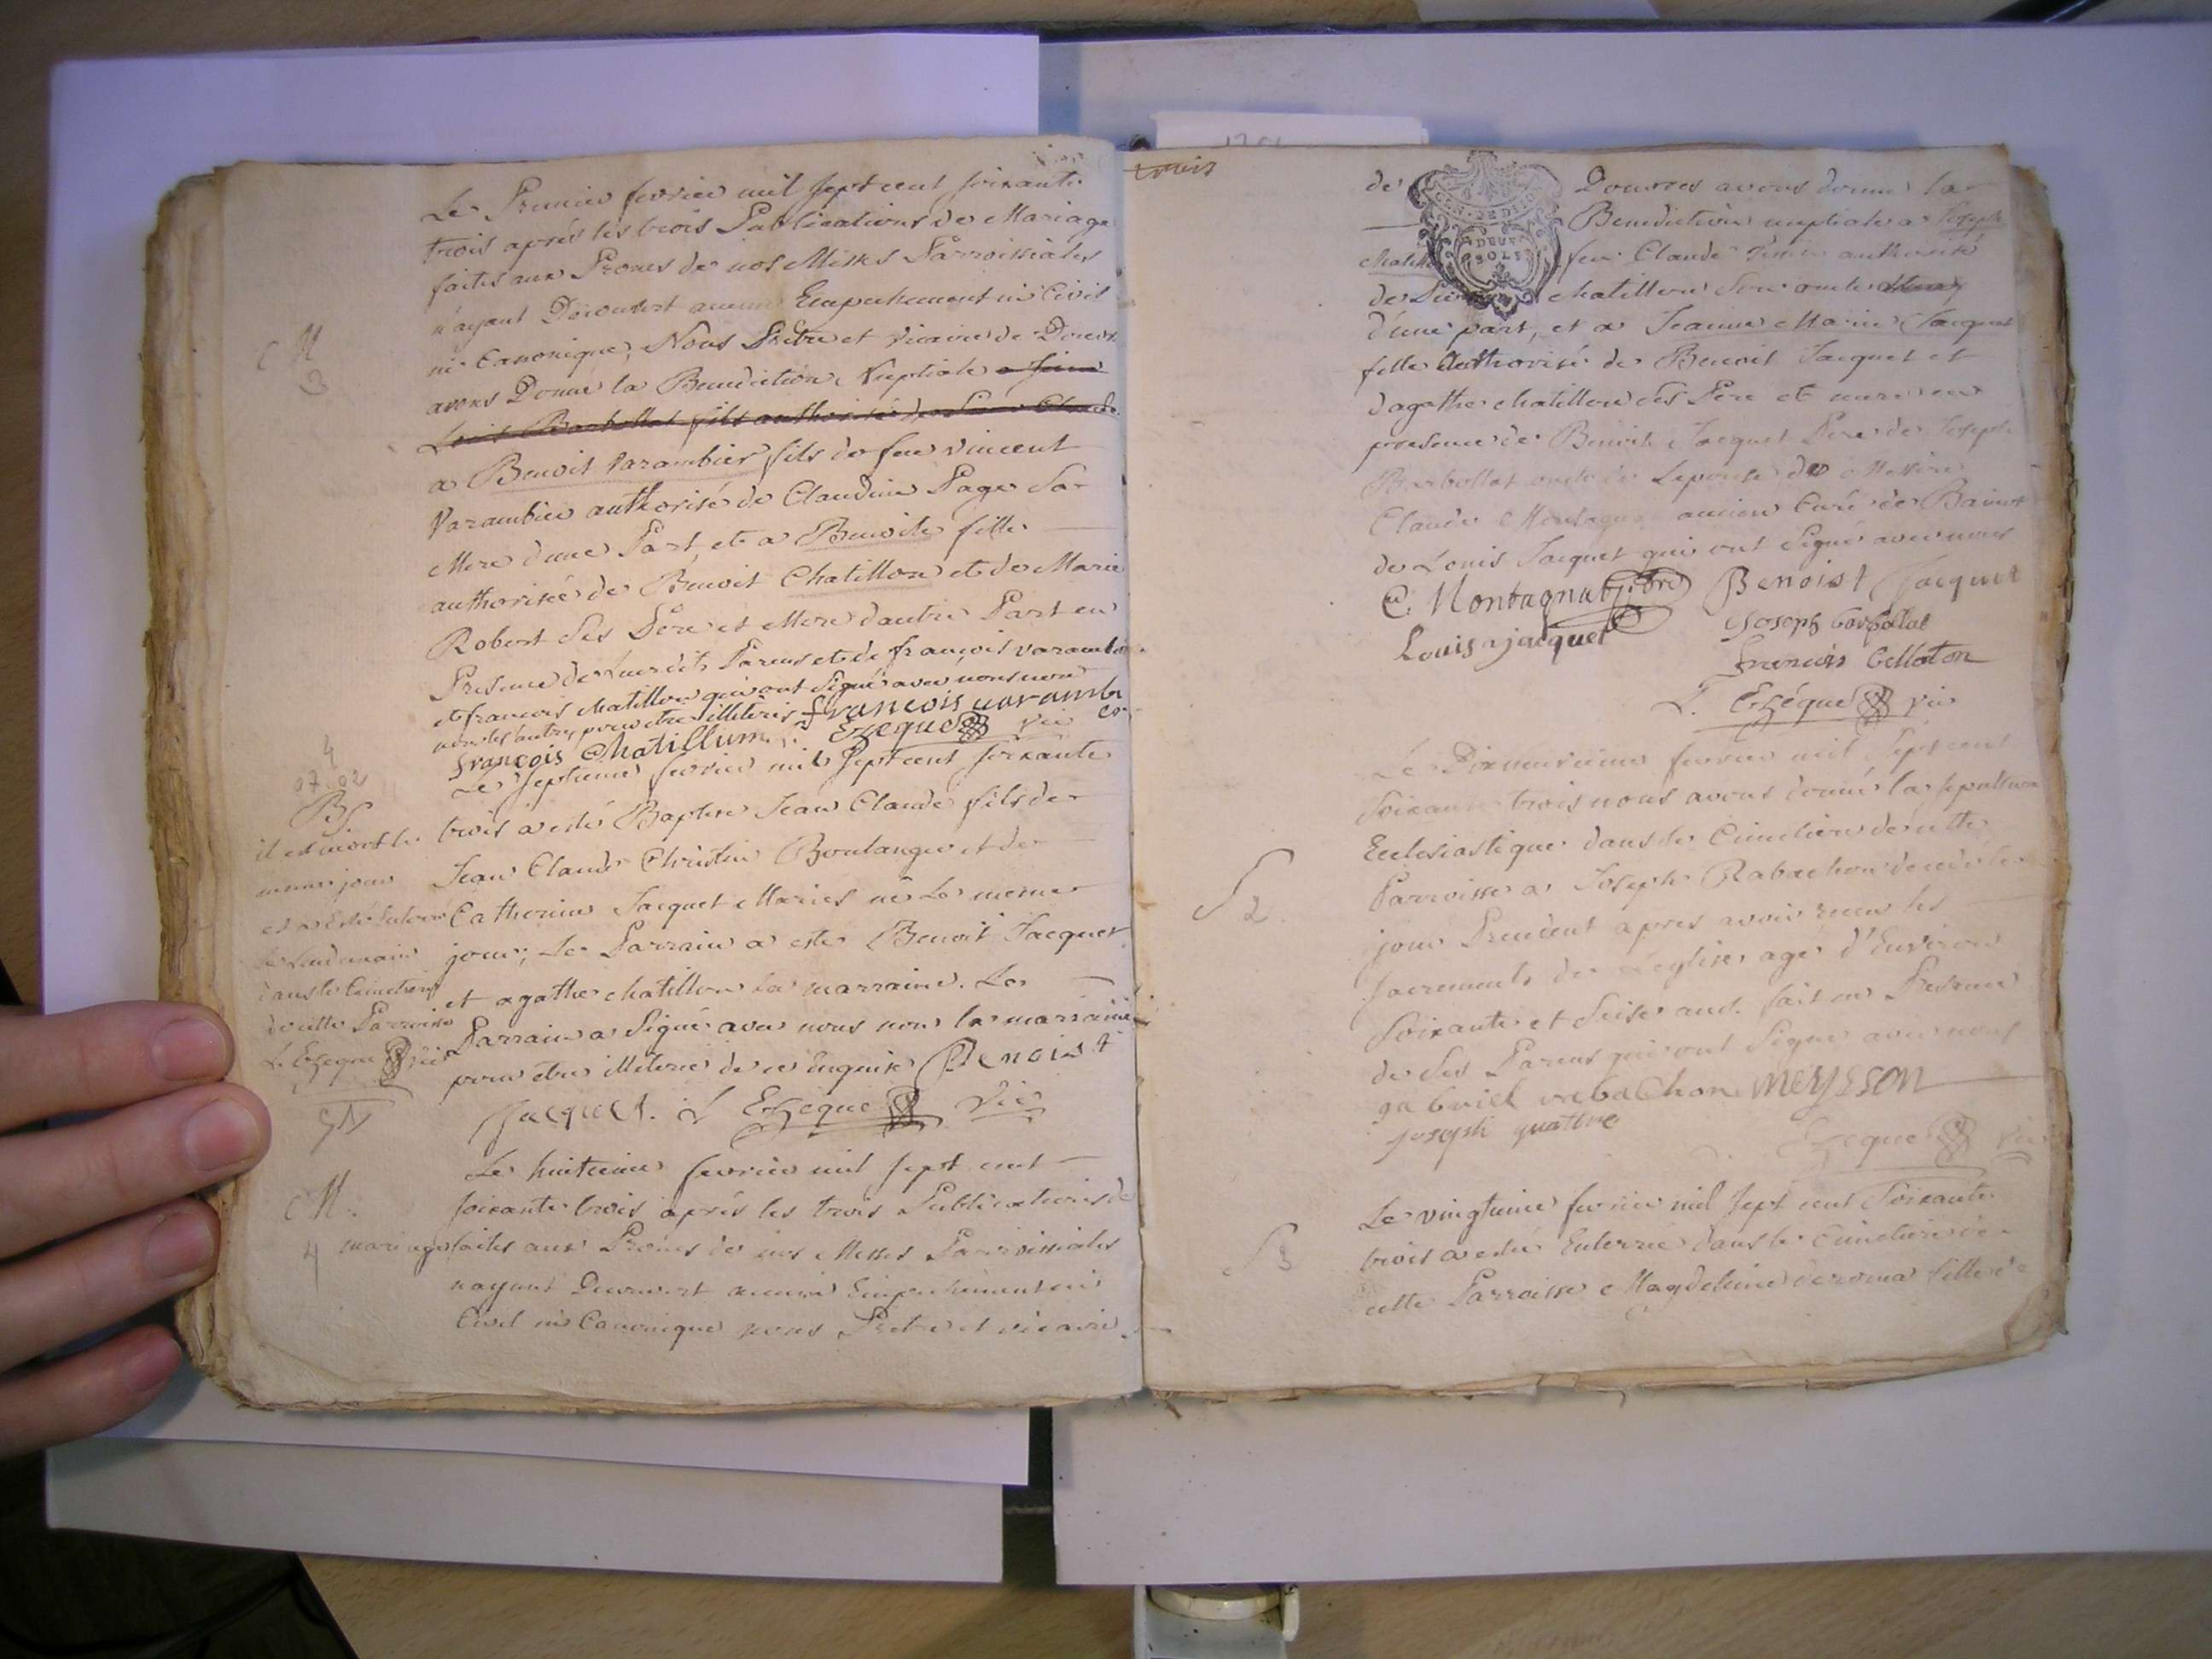 Le Premier fevrier mil sept cent soixante
trois après les trois Publications de Mariage
faites aux Prones de nos Messes Parroissiales
n'ayant Decouvert aucun Empechement ni Civil
ni Canonique, Nous Prêtre et Vicaire de
M
3
avons Donné la Benediction Nuptiale
Louis Barbollat fils authorisé de Claude
a Benoit Varambier fils de feu Vincent
Varambier authorisé de Claudine Page Sa
Mere d'une Part, et a Benoite fille
authorisée de Benoit Chatillon et de Marie
Robert Ses Père et Mere d'autre Part en
Presence de Leurs dits Parens et de françois varambier
et françois chatillon qui ont Signé avec nous non
non les autres pour etre illiteris françois varambi
er
françois Chatillum L. Ezeque vic
4
07.02
Bs.
il est mort le
meme jour
et a Esté Enterré
le Lendemain
dans le Cimetiere
de cette Parroisse
L. Ezeque vic
Le Septieme fevrier mil Sept cent soixante
trois a esté Baptisé Jean Claude fils de
Jean Claude Christin Boulanger et de
Catherine Jacquet Mariés né Le meme
jour; Le Parrain a esté Benoit Jacquet
et agathe chatillon la marraine. Le
Parrain a Signé avec nous non la marraine
pour etre illiterée de ce Enquise Benoist
Jacquet. L Ezeque Vic
M.
4
mariage
Le huitieme fevrier mil sept cent
soixante trois après les trois Publications de
faites aux Prônes de nos Messes Parroissiales
nayant Decouvert aucun Empechement ni
Civil ni Canonique nous Prêtre et vicaire
trois
de Douvres avons donné la
Benediction nuptiale a Joseph
feu Claude authorisé
GEN. DE DIJON
DEUX
SOLS
de chatillon Son oncle
d'une part, et a Jeanne Marie Jacquet
fille Authorisé de Benoit Jacquet et
d'agathe chatillon Ses Pere et mere en
presence de Benoit Jacquet Pere de Joseph
Barbollat oncle de Lepouse de Messire
Claude ancien Curé de
de Louis Jacquet qui ont Signé avec nous
C. Montagnat ptre Benoist Jacquet
Louis jacquet Joseph barbolat
francois
L. Ezéque vic
Le Dixneuvieme fevrier mil Sept cent
Soixante trois nous avons donné la sepulture
Ecclesiastique dans le Cimetiere de cette
S 2.
Parroisse a Joseph Rabachon decedé le
jour Precedent après avoir receu les
sacrements de l'eglise agé d'Environ
Soixante et Seise ans. fait en Presence
de Ses Parens qui ont Signé avec nous
gabriel rabachon MEYSSON
joseph quattre
Ezeque vic
S 3
Le vingtieme fevrier mil Sept cent Soixante
trois a esté Enterrée dans le Cimetiere de
cette Parroisse Magdeleine fille de